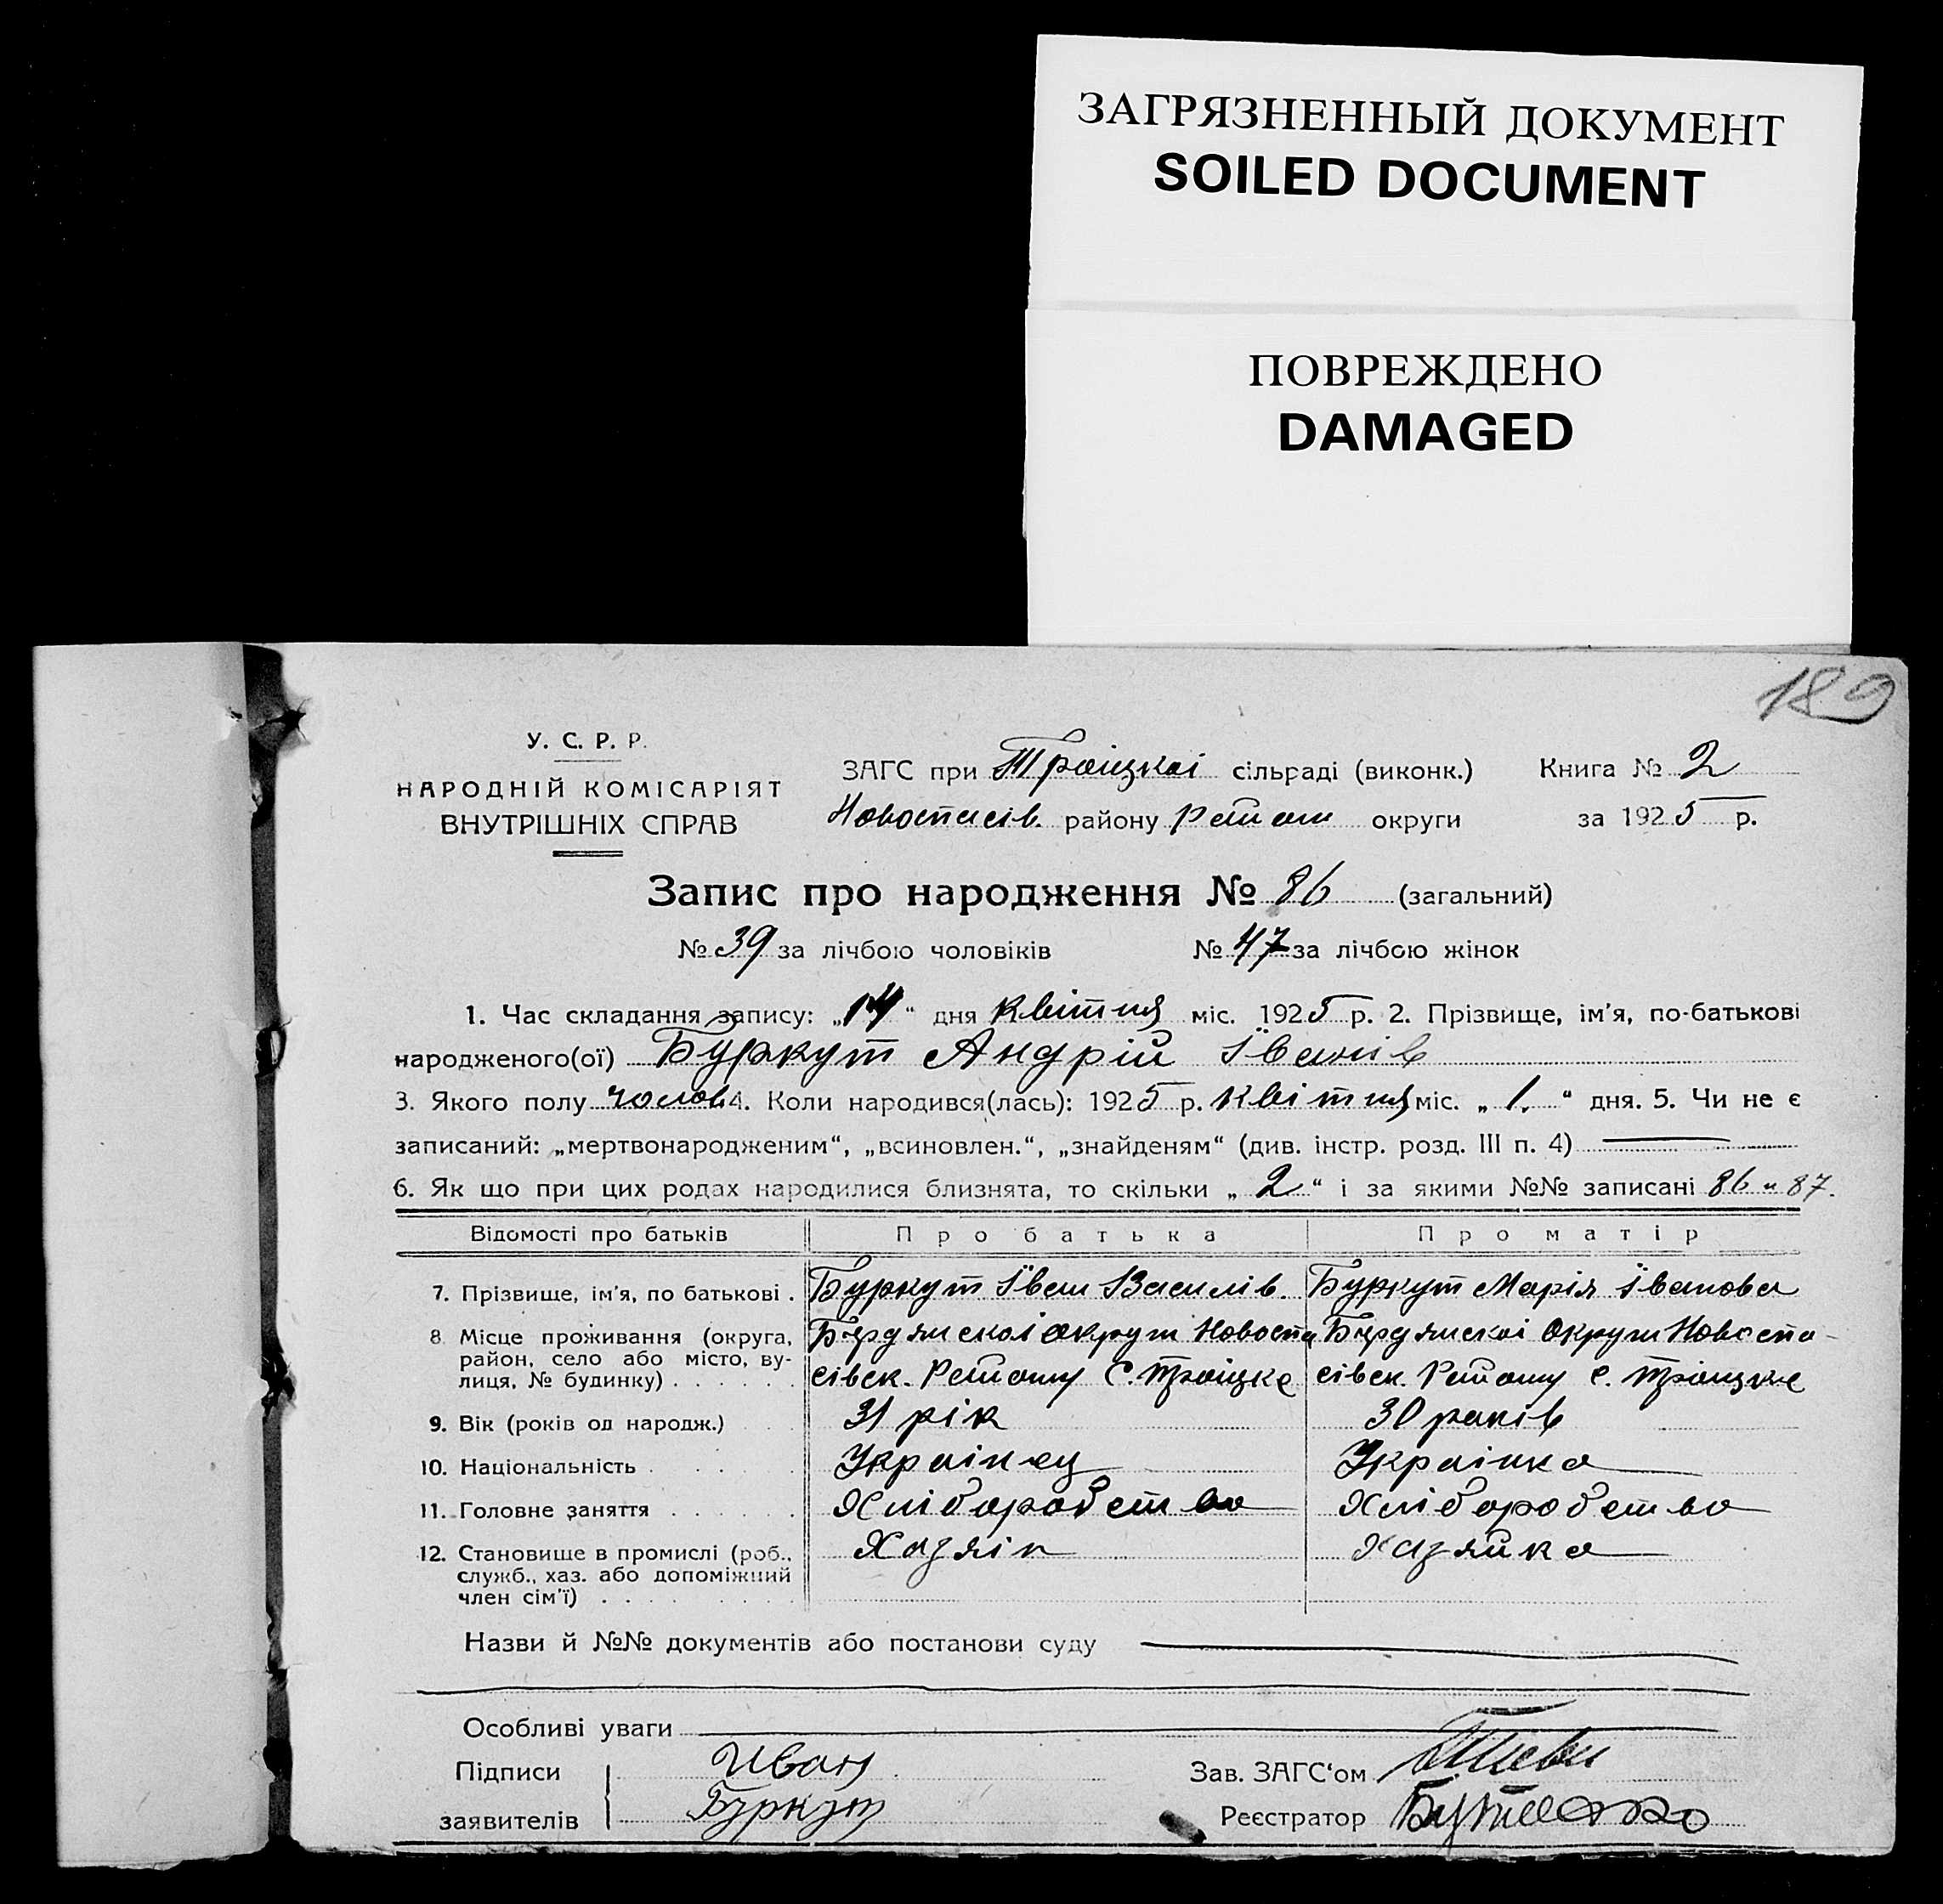 ЗАГРЯЗНЕННЫЙ ДОКУМЕНТ
SOILED DOCUMENT
ПОВРЕЖДЕНО
DAMAGED
189
У. С. Р. Р.
НАРОДНІЙ КОМІСАРІЯТ
ВНУТРІШНІХ СПРАВ
ЗАГС при Троіцкоі сільраді (виконк.) Книга № 2
Новоспасів. району округи за 1925 р.
Запис про народження № 86 (загальний)
№ 39 за лічбою чоловіків № 47 за лічбою жінок
1. Час складання запису: „14“ дня Квітня міс. 1925 р. 2. Прізвище, ім'я, по-батькові
народженого(ої) Буркут Андрій Іванів
3. Якого полу чолов. 4. Коли народився(лась): 1925 р. Квітня міс. „1.“ дня. 5. Чи не є
записаний: „мертвонародженим“, „всиновлен.“, „знайденям“ (див. інстр. розд. III п. 4)
6. Як що при цих родах народилися близнята, то скільки „2“ і за якими №№ записані 86 и 87.
Відомості про батьків Про батька Про матір
7. Прізвище, ім'я, по батькові . Буркут Іван Василів. Буркут Марія Іванова
8 Місце проживання (округа, район, село або місто, вулиця, № будинку) . . . . . . Бердянскоі округи Новоспасівск. Району С. Троіцке Бердянскоі Округи Новоспасівск. Району С. Троіцке
9. Вік (років од народж.) 31 рік 30 років
10. Національність Украінец Украінка
11. Головне заняття Хліборобство Хліборобство
12. Становише в промислі (роб., служб., хаз. або допоміжний член сім'ї) Хазяін Хазяйка
Назви й №№ документів або постанови суду
Особливі уваги
Підписи Иван Зав. ЗАГС'ом
заявителів Буркут Реєстратор